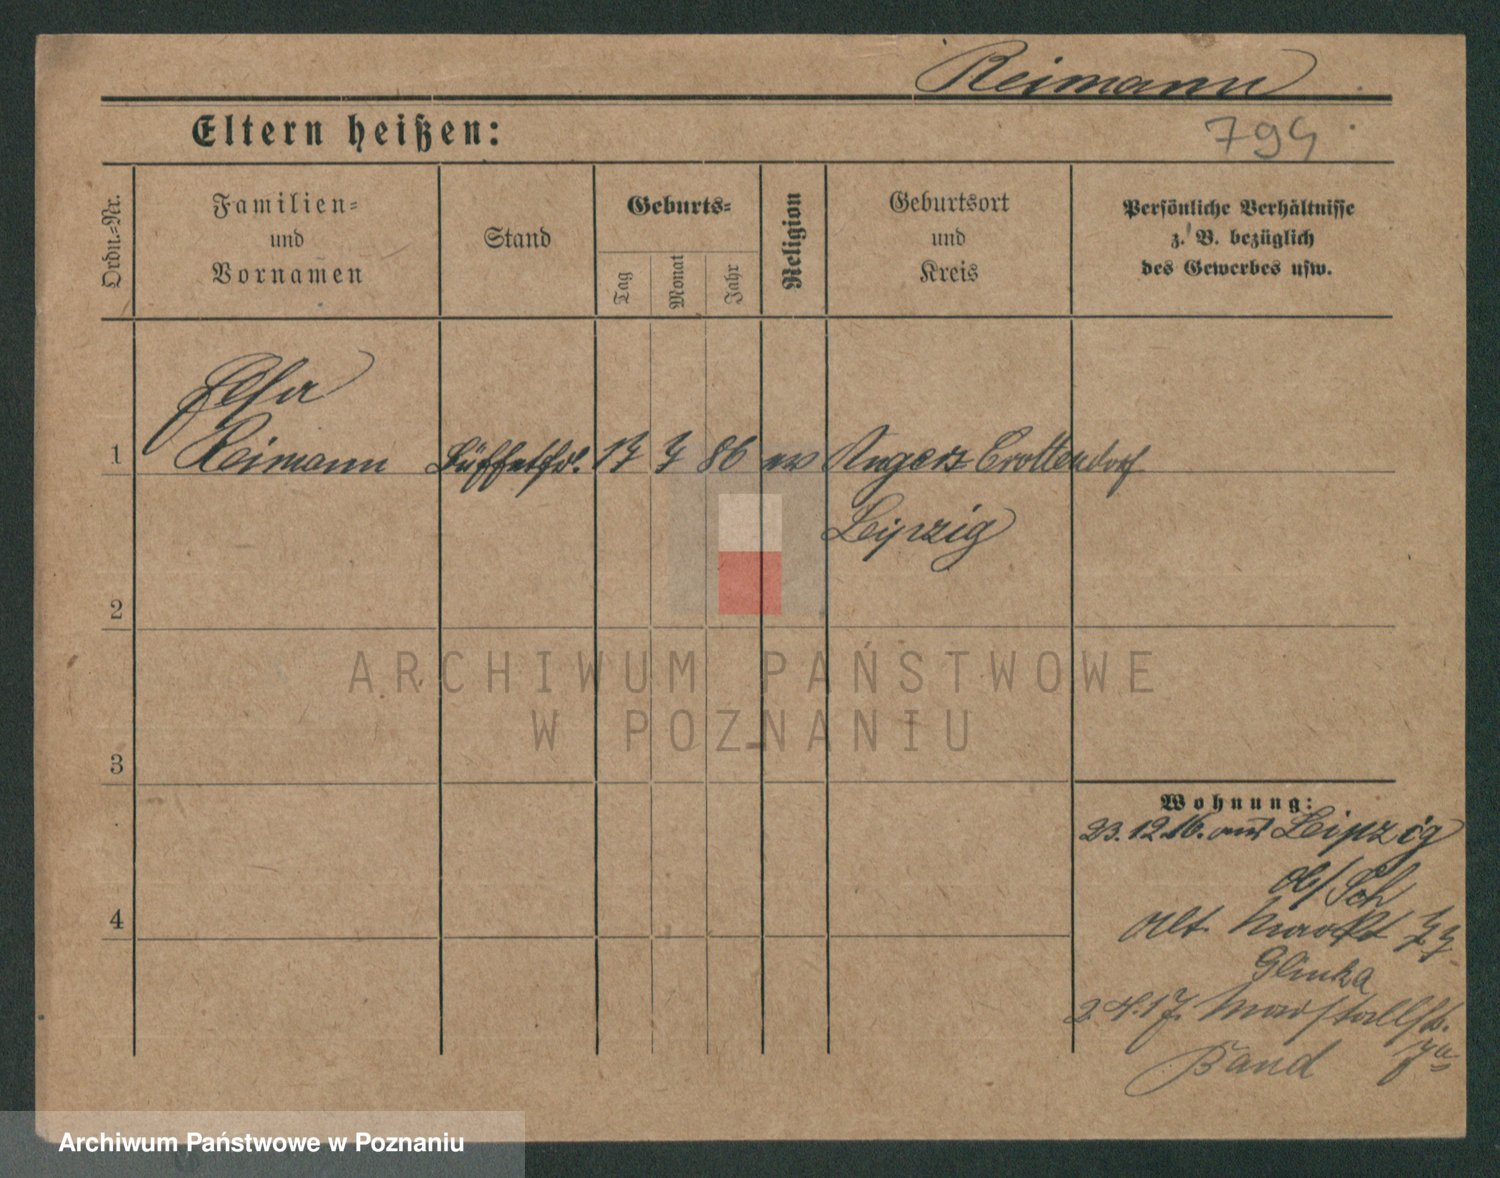 Reimann
Eltern heißen:
794
Ordn.-Nr.
Familien-
und
Vornamen
Stand
Geburts-
Tag
Monat
Jahr
Religion
Geburtsort
und
Kreis
Persönliche Verhältnisse
z. B. bezüglich
des Gewerbes usw.
Elsa
1 Reimann Büffetfrl. 17 7 86 ev Angerz Crottendorf
Leipzig
2
3
4
Wohnung:
23.12.16. aus Leipzig
Alt. Markt 77
Glinka
2.4.17. Marstallstr.
Band 7a
ARCHIWUM PAŃSTWOWE
W POZNANIU
Archiwum Państwowe w Poznaniu